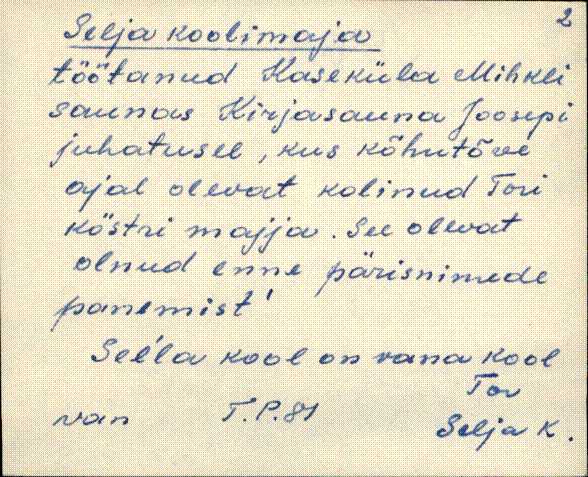 2
Selja koolimaja
töötanud Kaseküla Mihkli
saunas Kirjasauna Joosepi
juhatusel, kus kõhutõve
ajal olevat kolinud Tori
köstri majja. See olevat
olnud enne pärisnimede
panemist!
Sel'la kool on vana kool
Tor
van T.P.81
Selja K.